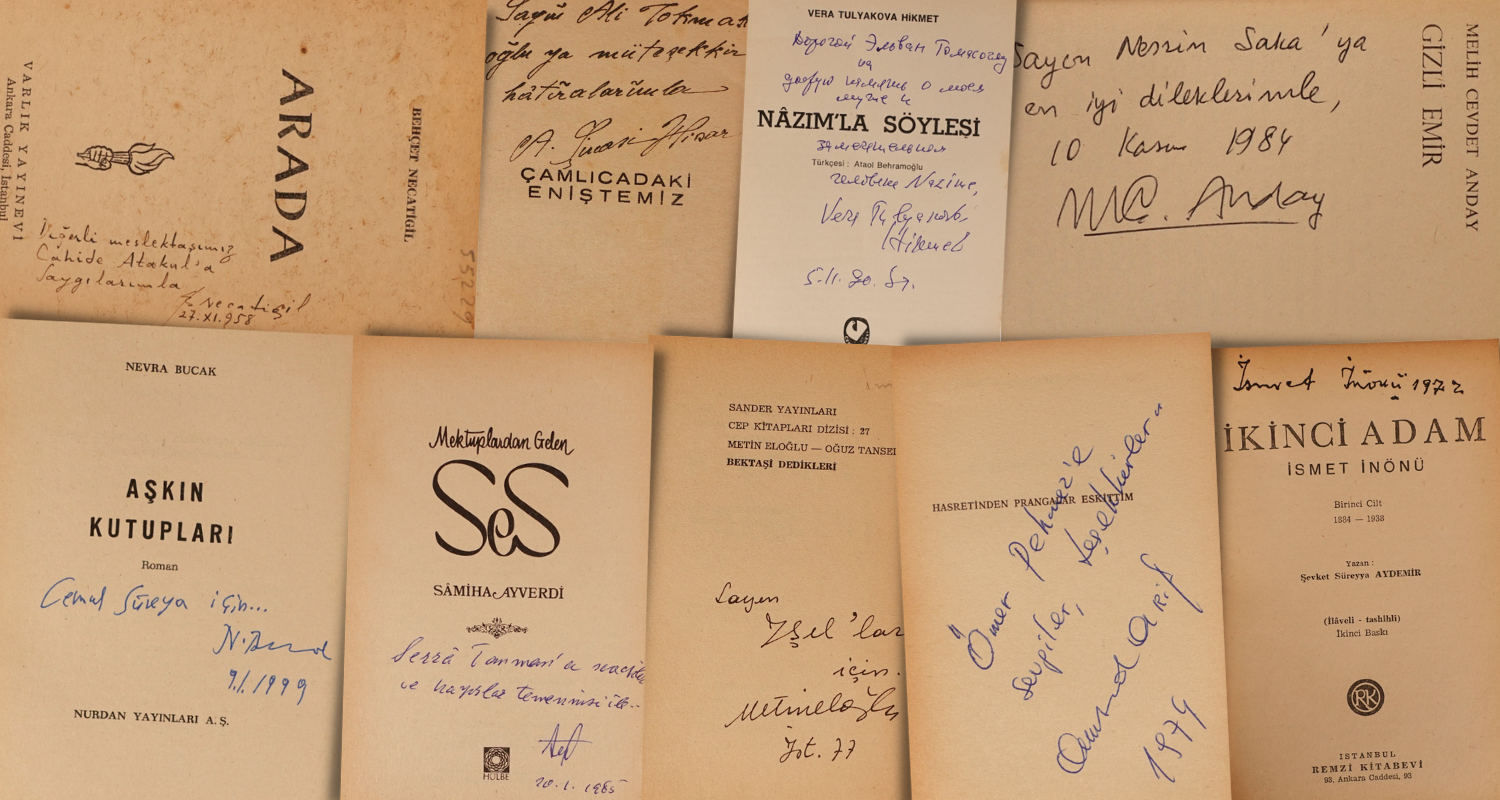 VARLIK YAYINEVİ
Ankara Caddesi, Istanbul
ARADA
BEHÇET NECATİGİL
Değerli meslektaşımız
Cahide Atakul'a
Saygılarımla
B. Necatigil
27.XI.958
55229
Sayın Ali Tokmak
oğlu ya müteşekkir
hâtıralarımla
A. Şinasi Hisar
ÇAMLICADAKİ
ENİŞTEMİZ
VERA TULYAKOVA HİKMET
Дорогой Эльван
на
добрую память о моем
муже и
NÂZIM'LA SÖYLEŞİ
замечательном
Türkçesi : Ataol Behramoğlu
человеке Назиме,
Вера Тулякова
Hikmet
5.11.
MELİH CEVDET ANDAY
GİZLİ EMİR
Sayın Nesrin Saka'ya
en iyi dileklerimle,
10 Kasım 1984
M.C. Anday
NEVRA BUCAK
AŞKIN
KUTUPLARI
Roman
Cemal Süreya için...
N. Bucak
9.1.1999
NURDAN YAYINLARI A.Ş.
Mektuplardan Gelen
SeS
SÂMİHA AYVERDİ
Serrâ Tanman'a
ve hayırlar temennisi ile..
20.1.1985
HÜLBE
SANDER YAYINLARI
CEP KİTAPLARI DİZİSİ : 27
METİN ELOĞLU — OĞUZ TANSEL
BEKTAŞİ DEDİKLERİ
Sayın
Işıl'lar
için.
Metin Eloğlu
İst. 77
HASRETİNDEN PRANGALAR ESKİTTİM
Ömer
sevgiler, teşekkürler
Ahmed Arif
1974
İsmet İnönü 1972
İKİNCİ ADAM
İSMET İNÖNÜ
Birinci Cilt
1884 — 1938
Yazan :
Şevket Süreyya AYDEMİR
(İlâveli - tashihli)
İkinci Baskı
RK
ISTANBUL
REMZİ KİTABEVİ
93, Ankara Caddesi, 93